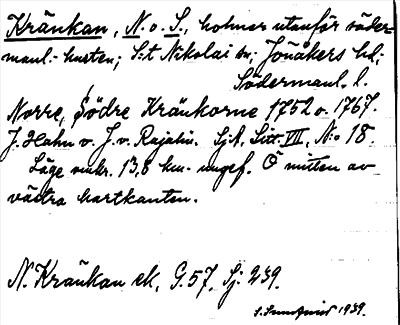 Kränkan, N. o. S., holmar utanför söder-
manl.-kusten; S:t Nikolai sn; Jönåkers hd.;
Södermanl. l.
Norre, Södre Kränkorne 1752 o. 1767.
J. Hahn v. J. v. Rajalin. SjA, Litt. VIII, N:o 18.
Läge omkr. 13,8 km. ungef. Ö mitten av
västra kartkanten.
N. Kränkan ek, G. 57, Sj. 239.
1939.